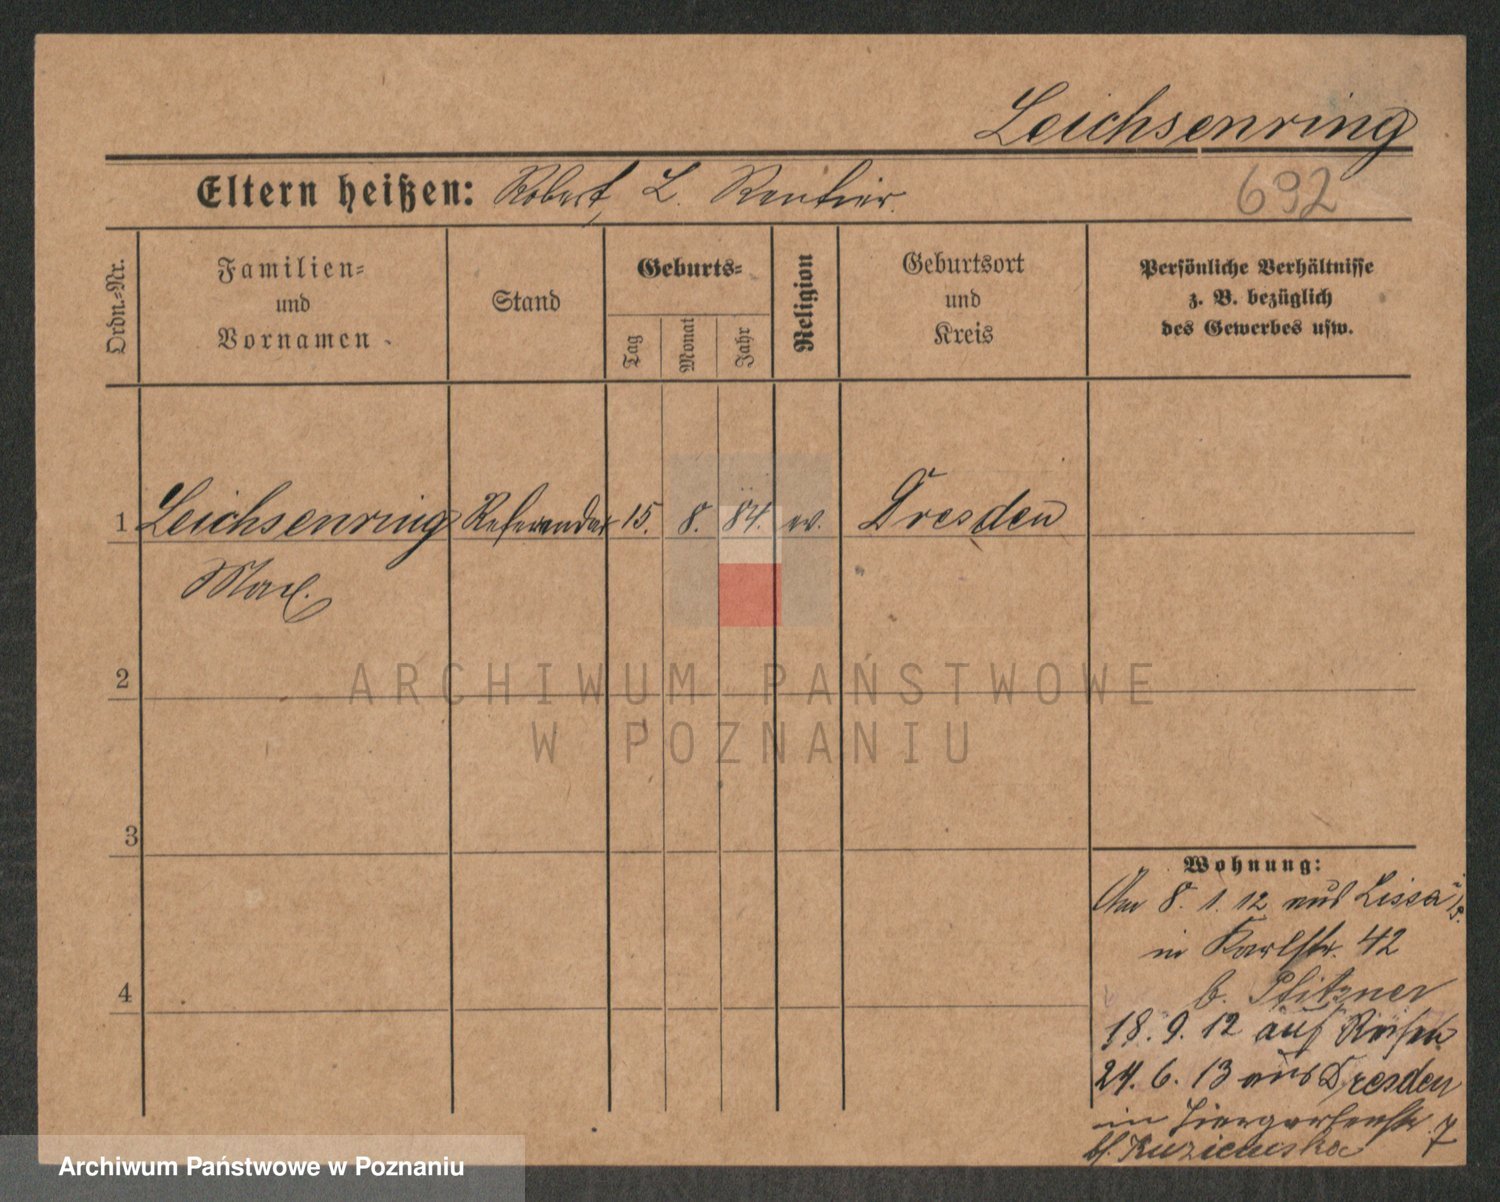 Leichsenring
Eltern heißen: Robert, L. Rentier.
692
Ordn.-Nr.
Familien-
und
Vornamen
Stand
Geburts-
Tag
Monat
Jahr
Religion
Geburtsort
und
Kreis
Persönliche Verhältnisse
z. B. bezüglich
des Gewerbes usw.
1 Leichsenring Referendar 15. 8. 84. ev. Dresden
Max.
2
ARCHIWUM PAŃSTWOWE
W POZNANIU
3
Wohnung:
Am 8. 1. 12 aus Lissa
in Karlstr. 42
4
b. Pfitzner
18. 9. 12 auf Reisen
24. 6. 13 aus Dresden
in Tiergartenstr. 7
Archiwum Państwowe w Poznaniu